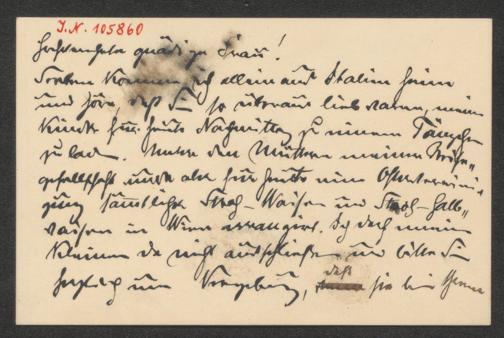 J.N. 105860
Hochverehrte gnädige Frau!
Soeben komme ich allein aus Italien heim
und höre, daß Sie so überaus lieb waren, meine
Kinder für heute Nachmittag zu einem Tänzchen
zu laden. Unter den Müttern meiner Reise-
gesellschaft wurde aber für heute eine
sämtlicher Stroh-Waisen und Stroh-Halb-
waisen in Wien arrangiert. Ich darf meine
Kleinen da nicht ausschließen und bitte Sie
herzlich um Vergebung, daß sie bei Ihnen